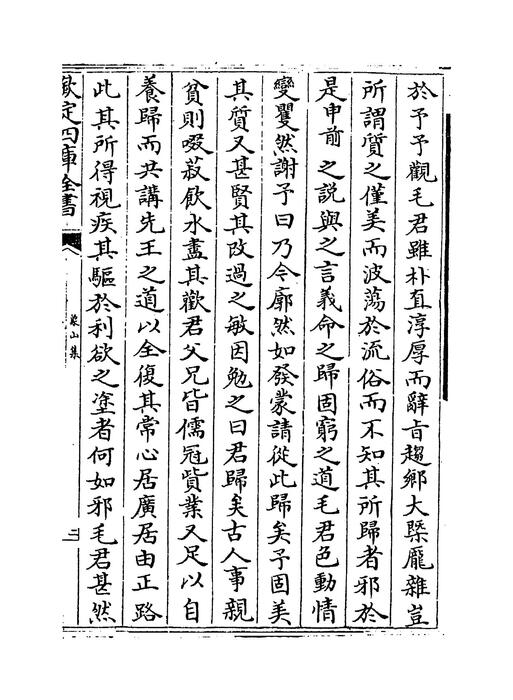 於予予觀毛君雖朴直淳厚而辭旨趨鄉大槩厖雜豈
所謂質之僅美而波蕩於流俗而不知其所歸者邪於
是申前之說與之言義命之歸固窮之道毛君色動情
變矍然謝予曰乃今廓然如發蒙請從此歸矣予固美
其質又甚賢其改過之敏因勉之曰君歸矣古人事親
貧則啜菽飲水盡其歡君父兄皆儒冠貲業又足以自
養歸而共講先王之道以全復其常心居廣居由正路
此其所得視疾其驅於利欲之塗者何如邪毛君甚然
欽定四庫全書
象山集
二